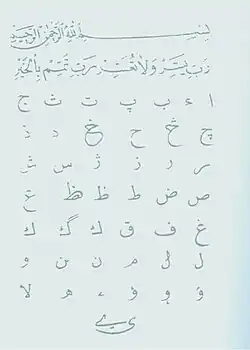 بسم الله الرحمن الرحيم
رب يسر ولا تعسر رب تمم بالخير
ا ء ب پ ت ث ج
چ څ ح خ د ذ
ر ز ژ س ش
ص ض ط ظ ظ ع
غ ف ق ك گ ك
ل ل م ن و
و ء ه لا
ى ے